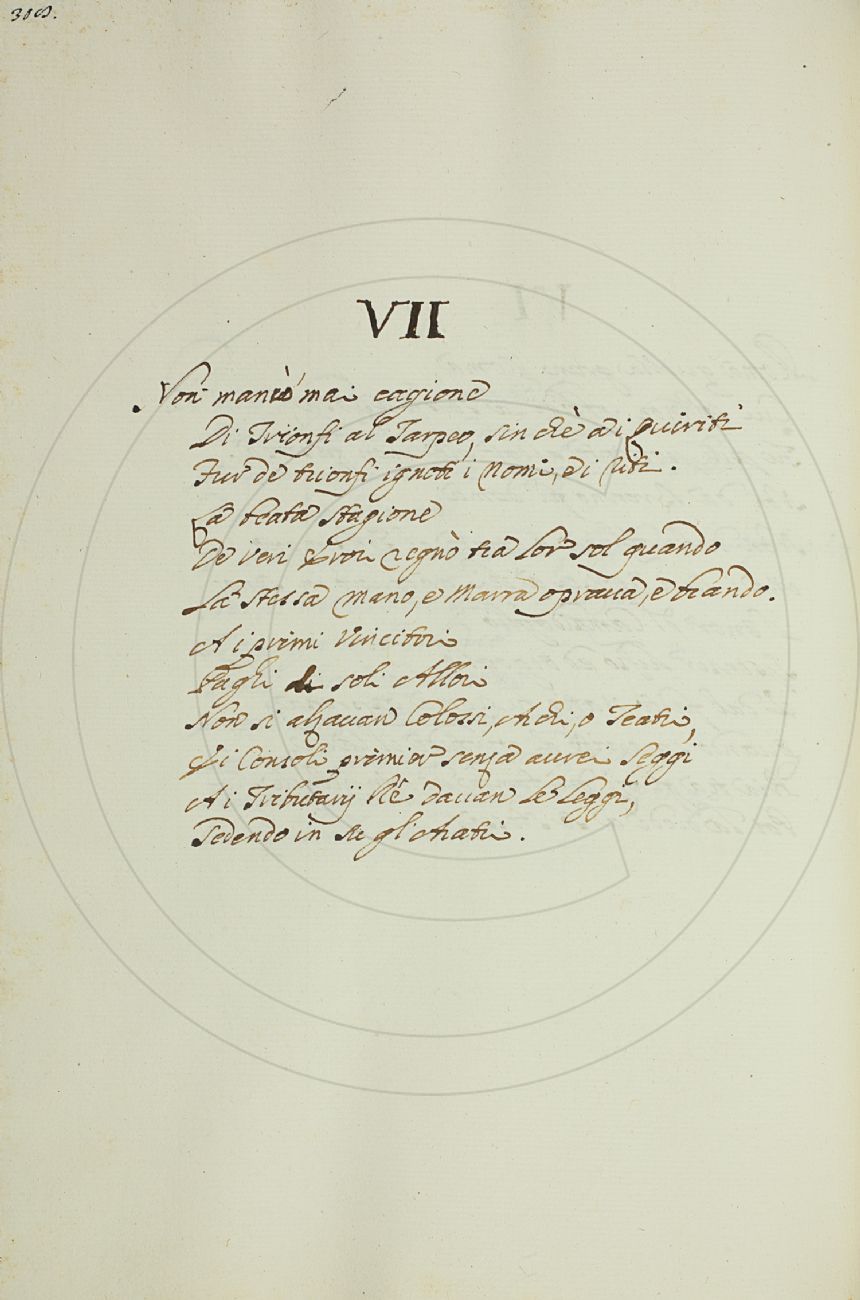 308.
VII
Non mancò mai cagione
Di Trionfi al Tarpeo, sin chè a i Quiriti
Fur de trionfi ignoti i Nomi, e i Riti.
La beata stagione
De veri Eroi regnò tra Lor sol quando
La stessa mano, e Marra oprava, e brando.
A i primi Vincitori
Paghi di soli Allori
Non si alzavan Colossi, Archi, o Teatri,
E i Consoli primier senza aurei seggi
A i Tributarij Rè davan le Leggi,
Sedendo in su gl'Aratri.